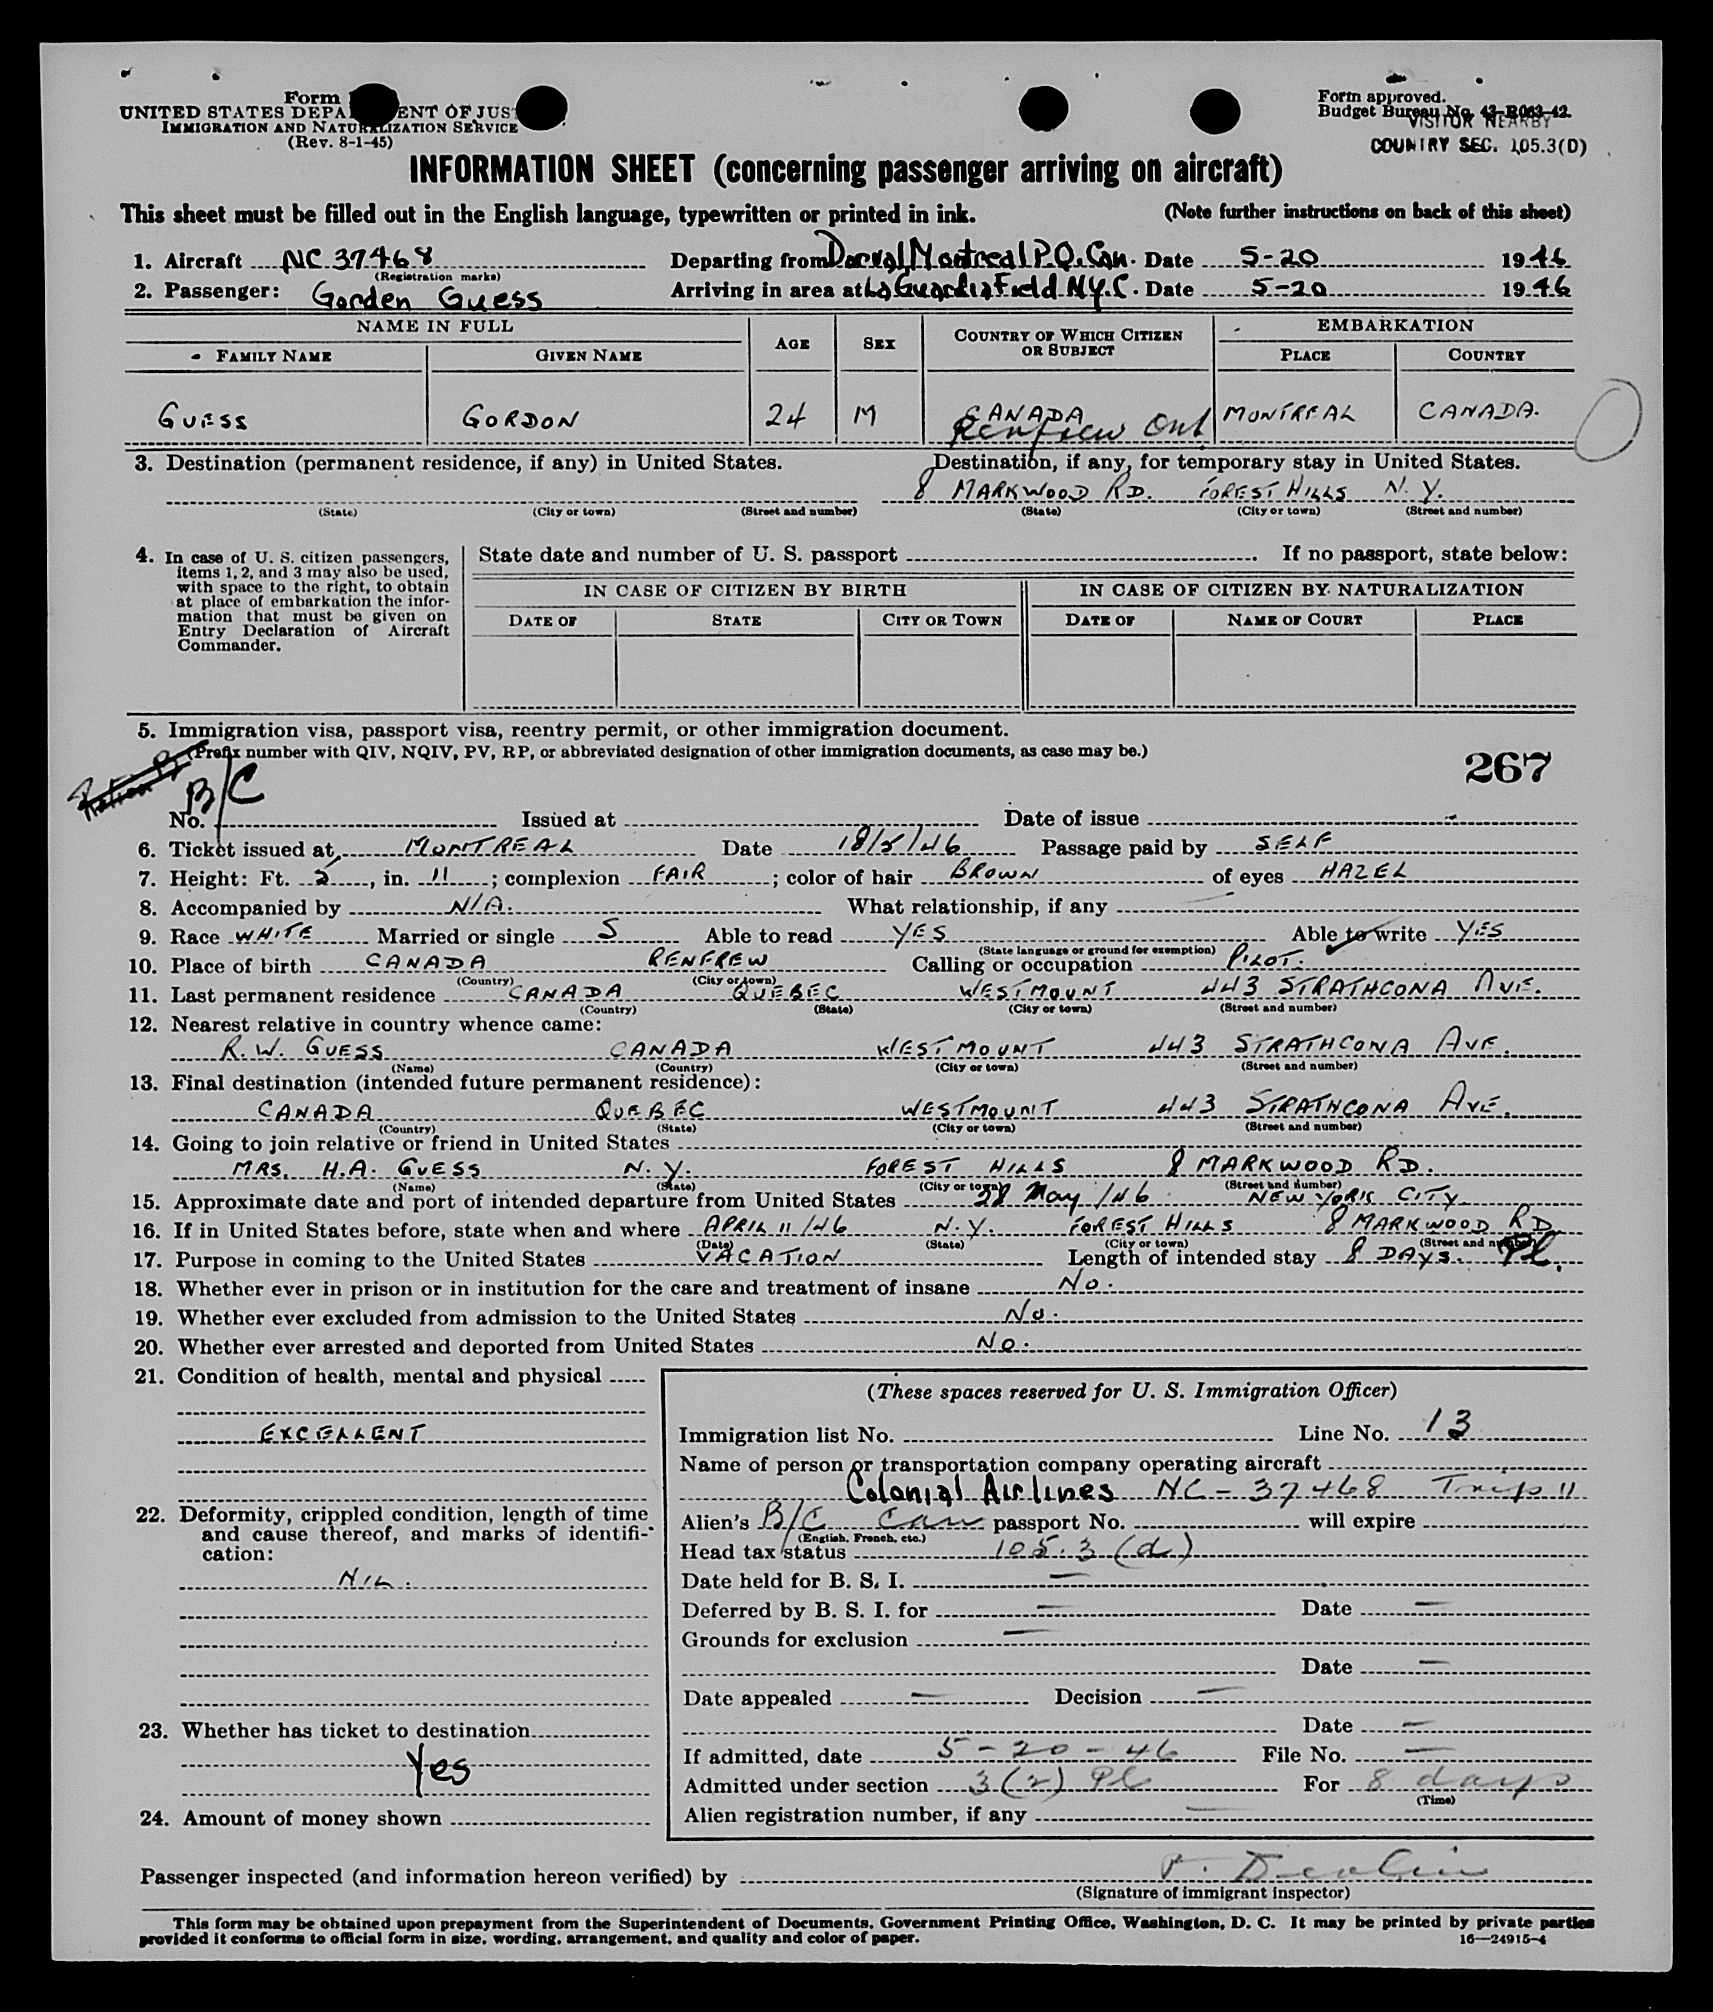 Form
UNITED STATES DEPA ENT OF JUS
IMMIGRATION AND NATURALIZATION SERVICE
(Rev. 8-1-45)
Form approved.
Budget Bureau No. 43-R063-42.
VISITOR NEARBY
COUNTRY SEC. 105.3(D)
INFORMATION SHEET (concerning passenger arriving on aircraft)
This sheet must be filled out in the English language, typewritten or printed in ink. (Note further instructions on back of this sheet)
1. Aircraft NC 37468 Departing from Dorval, Montreal P.Q. Can. Date 5-20 1946
(Registration marks)
2. Passenger: Gorden Guess Arriving in area at La Guardia Field N.Y.C. Date 5-20 1946
NAME IN FULL AGE SEX COUNTRY OF WHICH CITIZEN OR SUBJECT EMBARKATION
FAMILY NAME GIVEN NAME PLACE COUNTRY
GUESS GORDON 24 M CANADA MONTREAL CANADA.
Renfrew Ont
3. Destination (permanent residence, if any) in United States. Destination, if any, for temporary stay in United States.
8 MARKWOOD RD. FOREST HILLS N.Y.
(State) (City or town) (Street and number) (State) (City or town) (Street and number)
4. In case of U. S. citizen passengers, items 1, 2, and 3 may also be used, with space to the right, to obtain at place of embarkation the information that must be given on Entry Declaration of Aircraft Commander.
State date and number of U. S. passport If no passport, state below:
IN CASE OF CITIZEN BY BIRTH IN CASE OF CITIZEN BY NATURALIZATION
DATE OF STATE CITY OR TOWN DATE OF NAME OF COURT PLACE
5. Immigration visa, passport visa, reentry permit, or other immigration document.
(Prefix number with QIV, NQIV, PV, RP, or abbreviated designation of other immigration documents, as case may be.)
267
B/C
No. Issued at Date of issue
6. Ticket issued at MONTREAL Date 18/5/46 Passage paid by SELF
7. Height: Ft. 5, in. 11; complexion FAIR; color of hair BROWN of eyes HAZEL
8. Accompanied by N/A. What relationship, if any
9. Race WHITE Married or single S Able to read YES Able to write YES
(State language or ground for exemption)
10. Place of birth CANADA RENFREW Calling or occupation PILOT.
(Country) (City or town)
11. Last permanent residence CANADA QUEBEC WESTMOUNT 443 STRATHCONA AVE.
(Country) (State) (City or town) (Street and number)
12. Nearest relative in country whence came:
R. W. GUESS CANADA WESTMOUNT 443 STRATHCONA AVE.
(Name) (Country) (City or town) (Street and number)
13. Final destination (intended future permanent residence):
CANADA QUEBEC WESTMOUNT 443 STRATHCONA AVE.
(Country) (State) (City or town) (Street and number)
14. Going to join relative or friend in United States
MRS. H.A. GUESS N.Y. FOREST HILLS 8 MARKWOOD RD.
(Name) (State) (City or town) (Street and number)
15. Approximate date and port of intended departure from United States 28 May/46 NEW YORK CITY
16. If in United States before, state when and where APRIL 11/46 N.Y. FOREST HILLS 8 MARKWOOD RD
(Date) (State) (City or town) (Street and number)
17. Purpose in coming to the United States VACATION Length of intended stay 8 DAYS. Pl.
18. Whether ever in prison or in institution for the care and treatment of insane No.
19. Whether ever excluded from admission to the United States No.
20. Whether ever arrested and deported from United States No.
21. Condition of health, mental and physical
EXCELLENT
22. Deformity, crippled condition, length of time and cause thereof, and marks of identification:
NIL.
23. Whether has ticket to destination
Yes
24. Amount of money shown
(These spaces reserved for U. S. Immigration Officer)
Immigration list No. Line No. 13
Name of person or transportation company operating aircraft
Colonial Airlines NC-37468 Trip 11
Alien's B/C Can passport No. will expire
(English, French, etc.)
Head tax status 105.3 (d)
Date held for B. S. I. —
Deferred by B. S. I. for — Date —
Grounds for exclusion —
Date —
Date appealed — Decision —
Date —
If admitted, date 5-20-46 File No. —
Admitted under section 3(2) Pl For 8 days
(Time)
Alien registration number, if any —
Passenger inspected (and information hereon verified) by
(Signature of immigrant inspector)
This form may be obtained upon prepayment from the Superintendent of Documents, Government Printing Office, Washington, D. C. It may be printed by private parties
provided it conforms to official form in size, wording, arrangement, and quality and color of paper. 16—24915-4